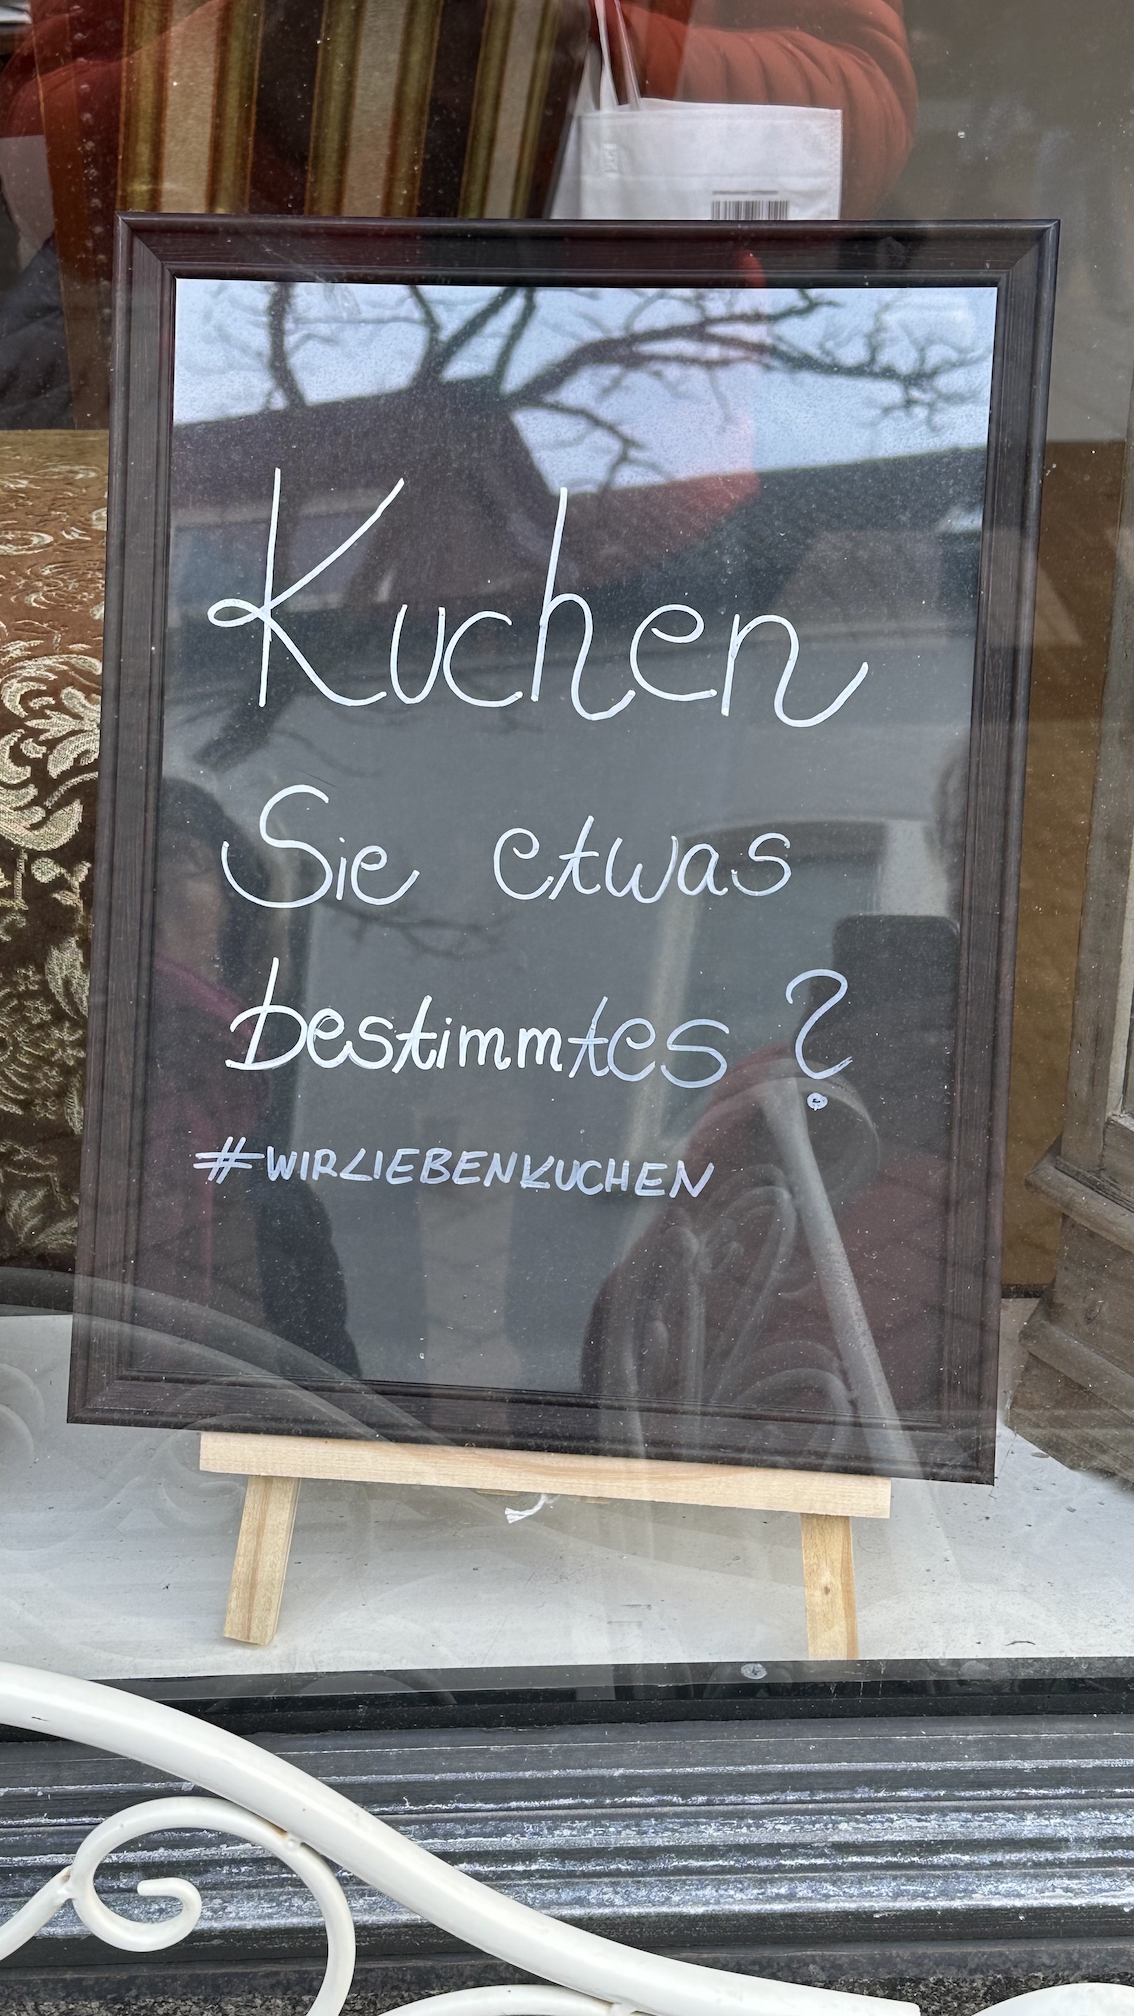 Kuchen
Sie etwas
bestimmtes?
#WIRLIEBENKUCHEN